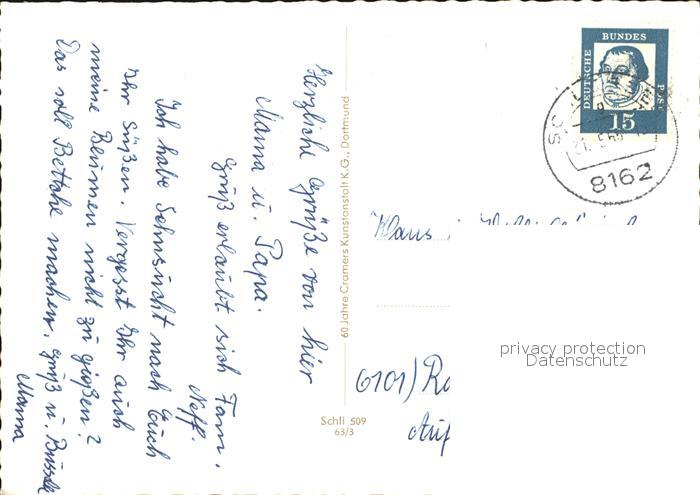 Herzliche Grüße von hier
Mama u. Papa.
Gruß erlaubt sich Fam.
Neff.
Ich habe Sehnsucht nach Euch
Ihr Süßen. Vergesst Ihr auch
meine Blumen nicht zu gießen?
Das soll machen. Gruß u.
Mama
60 Jahre Cramers Kunstanstalt K.G., Dortmund
Schli 509
63/3
DEUTSCHE
BUNDES
POST
15
8162
Klaus
6101)
privacy protection
Datenschutz